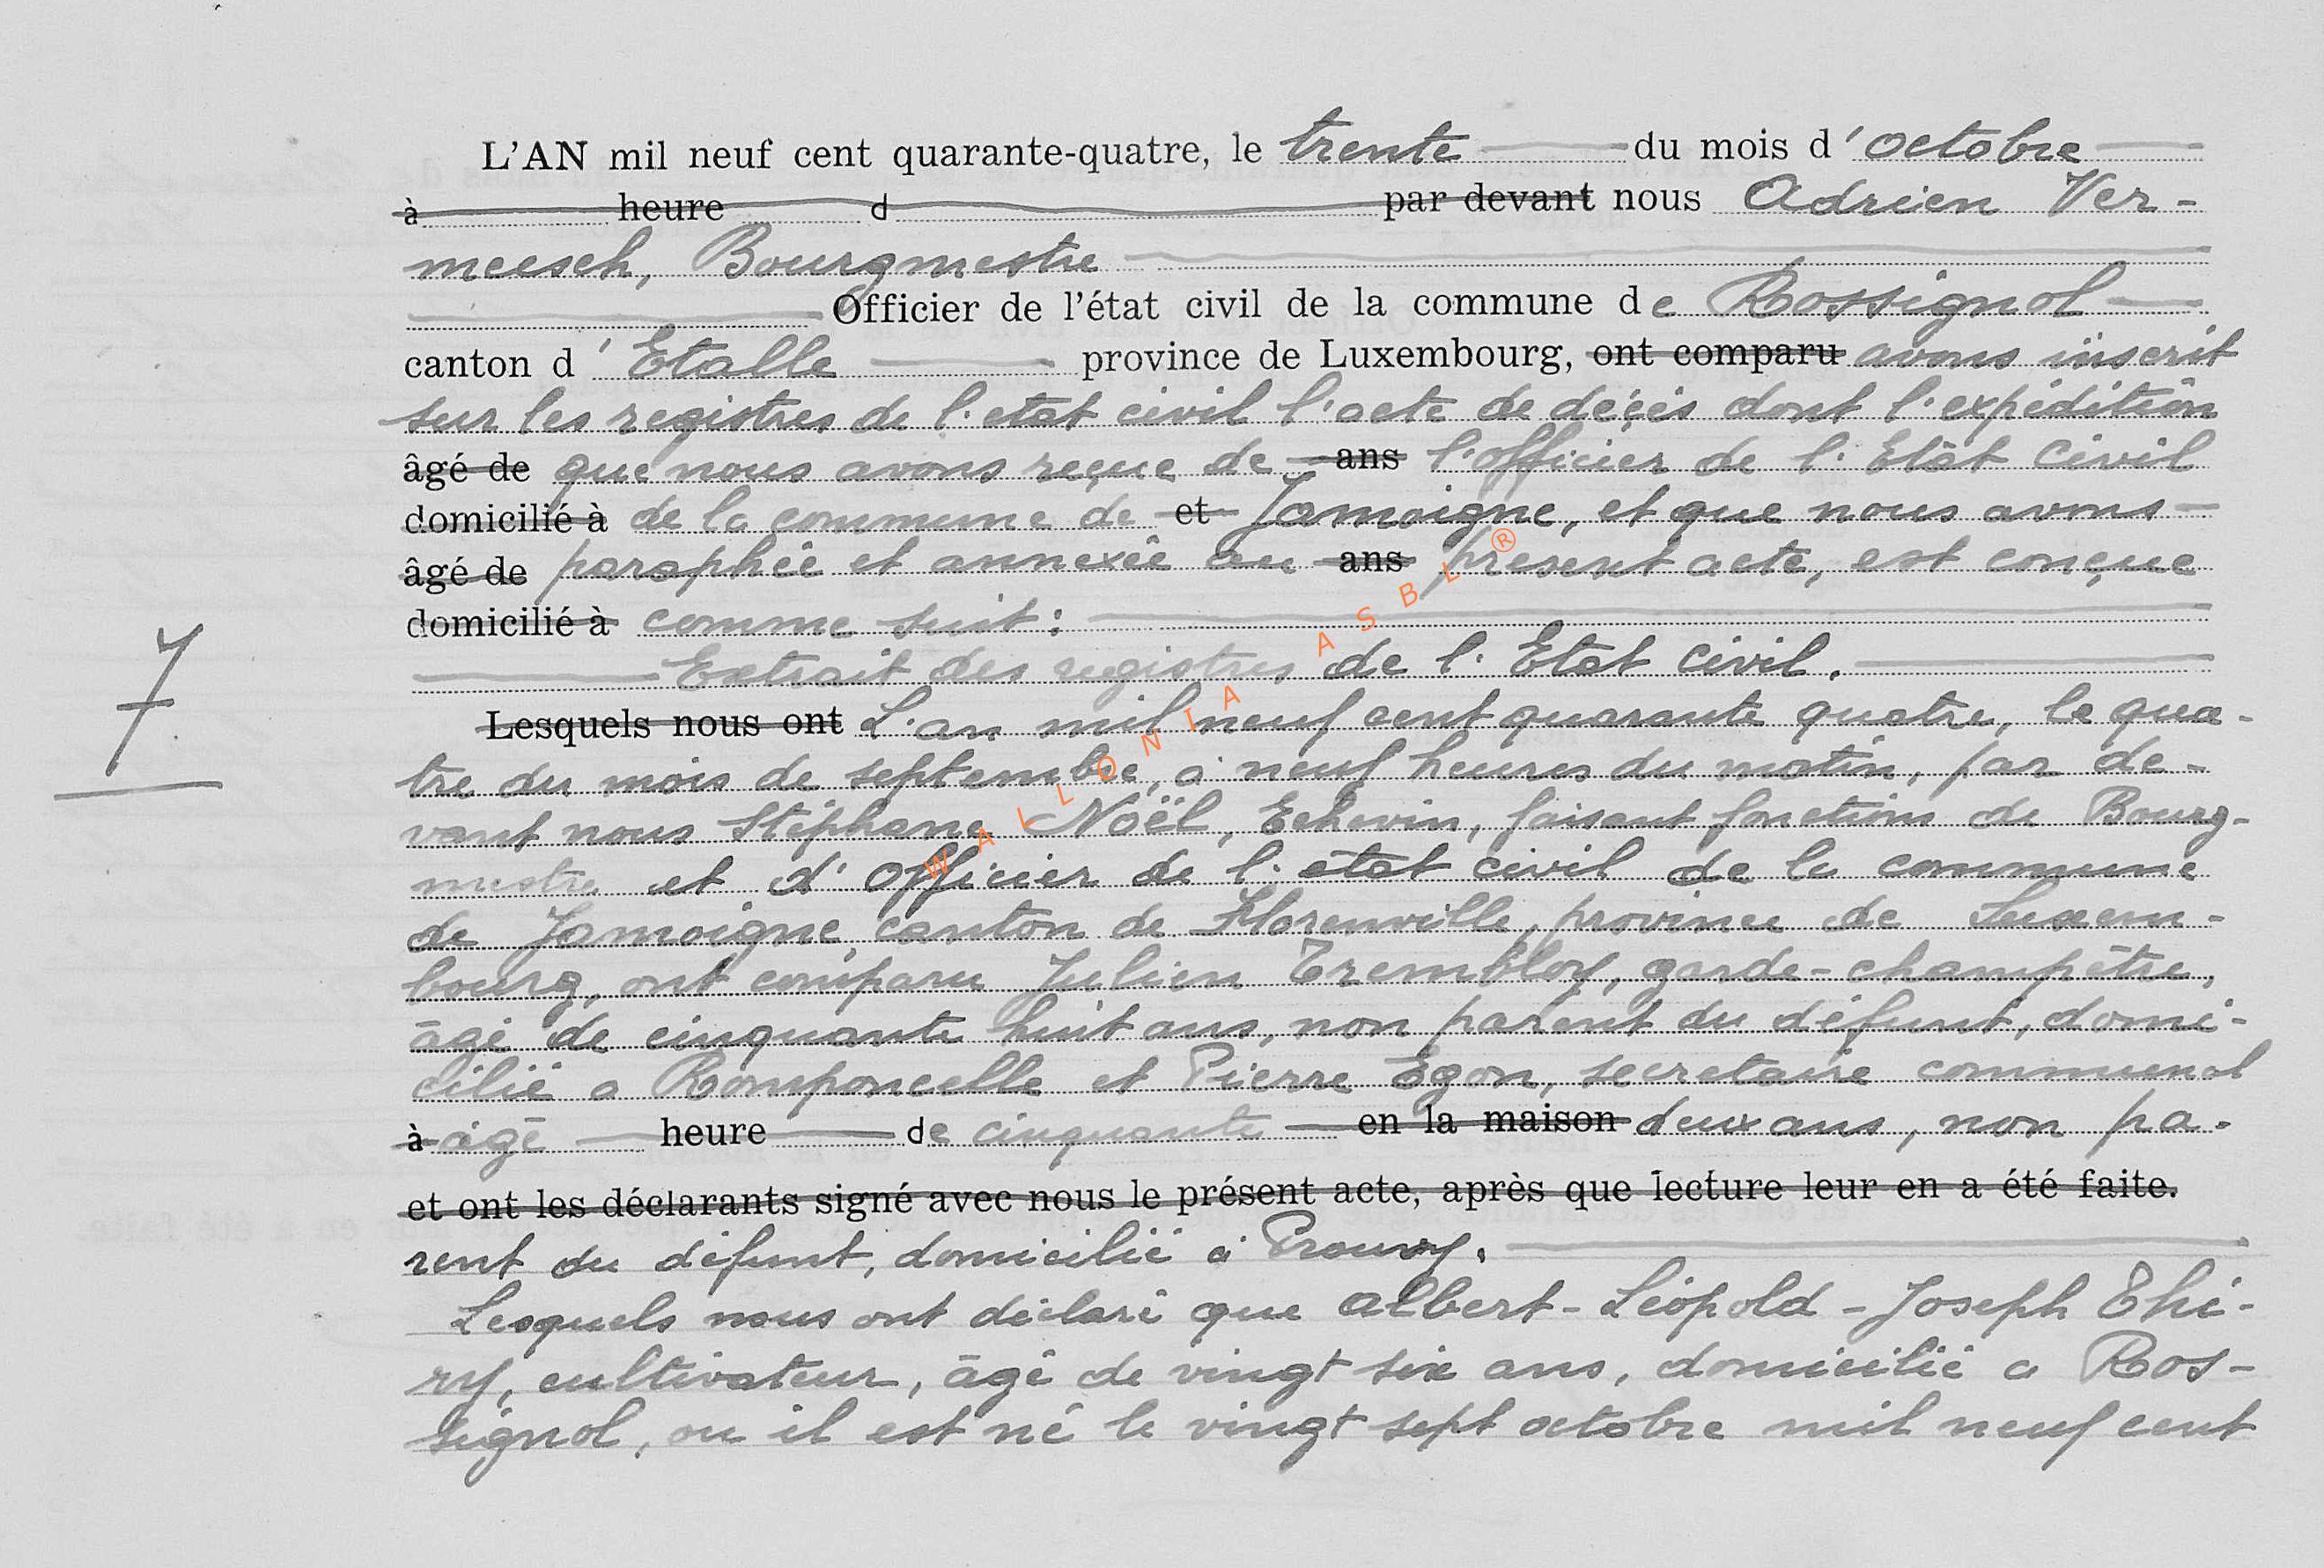 L'AN mil neuf cent quarante-quatre, le trente du mois d'octobre
à heure d par devant nous Adrien Ver-
meesch, Bourgmestre
Officier de l'état civil de la commune de Rossignol
canton d'Etalle province de Luxembourg, ont comparu avons inscrit
sur les registres de l'etat civil l'acte de décès dont l'expédition
âgé de que nous avons reçue de ans l'officier de l'Etat Civil
domicilié à de la commune de et Jamoigne, et que nous avons
âgé de paraphée et annexée au ans présent acte, est conçue
domicilié à comme suit :
Extrait des registres de l'Etat Civil.
7
Lesquels nous ont L'an mil neuf cent quarante quatre, le qua-
tre du mois de septembre, à neuf heures du matin, par de-
vant nous Stéphane Noël, Echevin, faisant fonctions de Bourg-
mestre et d'Officier de l'état civil de la commune
de Jamoigne, canton de Florenville, province de Luxem-
bourg, ont comparu Julien Trembloy, garde-champêtre,
âgé de cinquante huit ans, non parent du défunt, domi-
cilié a Romponcelle et Pierre Egon, secretaire communal
à âgé heure de cinquante en la maison deux ans, non pa-
et ont les déclarants signé avec nous le présent acte, après que lecture leur en a été faite.
rent du défunt, domicilié à Prouvy.
Lesquels nous ont déclaré que Albert-Léopold-Joseph Thi-
ry, cultivateur, âgé de vingt six ans, domicilié a Ros-
signol, ou il est né le vingt sept octobre mil neuf cent
WALLONIA ASBL ®